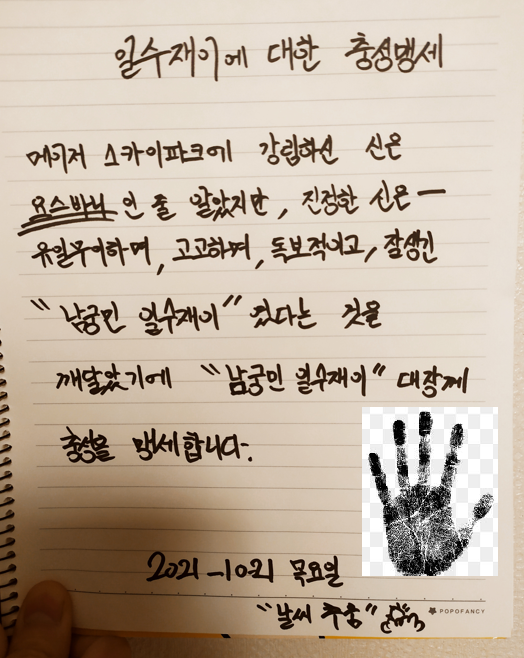 일수재이에 대한 충성맹세
메이저 스카이파크에 강림하신 신은
요스바니 인 줄 알았지만, 진정한 신은ㅡ
유일무이하며, 고고하며, 독보적이고, 잘생긴
"남궁민 일수재이" 였다는 것을
깨달았기에 "남궁민 일수재이" 대장께
충성을 맹세합니다.
2021-10-21 목요일
"날씨 추웅"
POPOFANCY